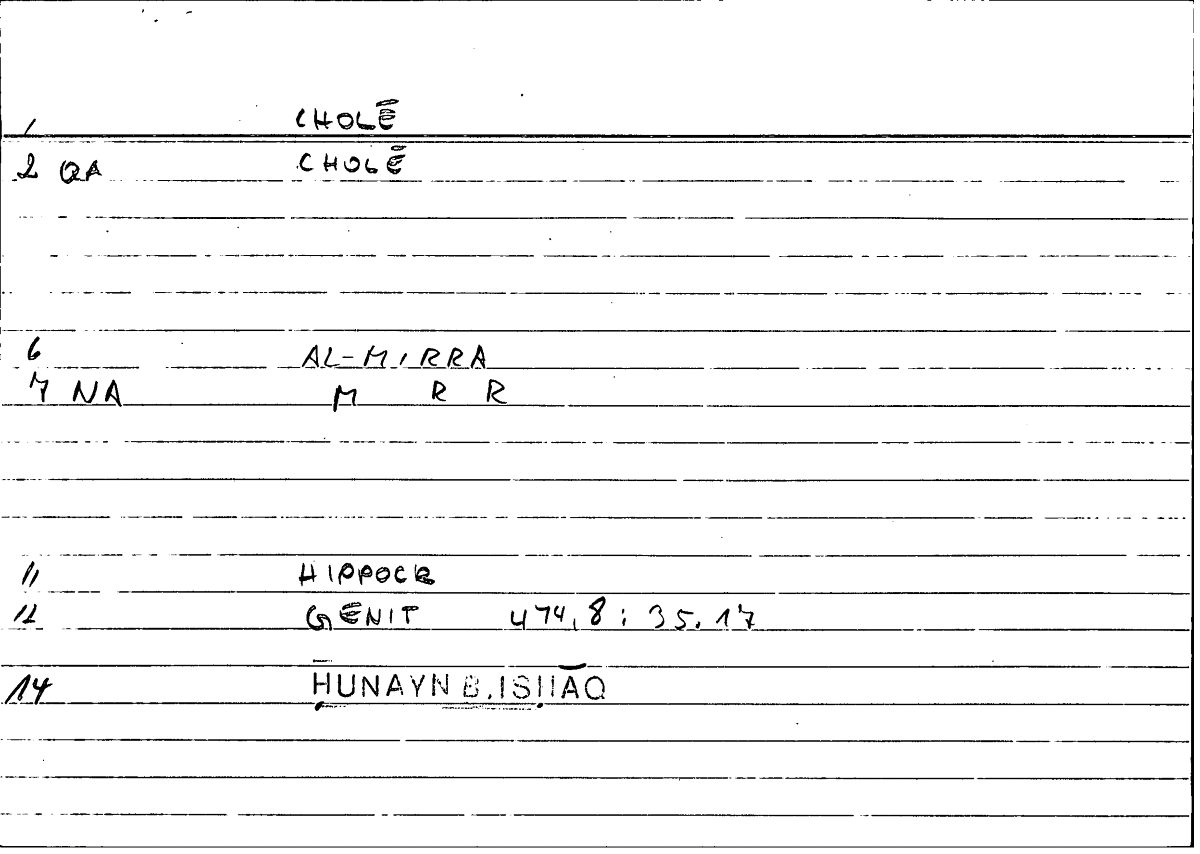 1 CHOLĒ
2 QA CHOLĒ
6 AL-MIRRA
7 NA M R R
11 HIPPOCR
12 GENIT 474,8 : 35.17
14 ḤUNAYN B. ISḤĀQ